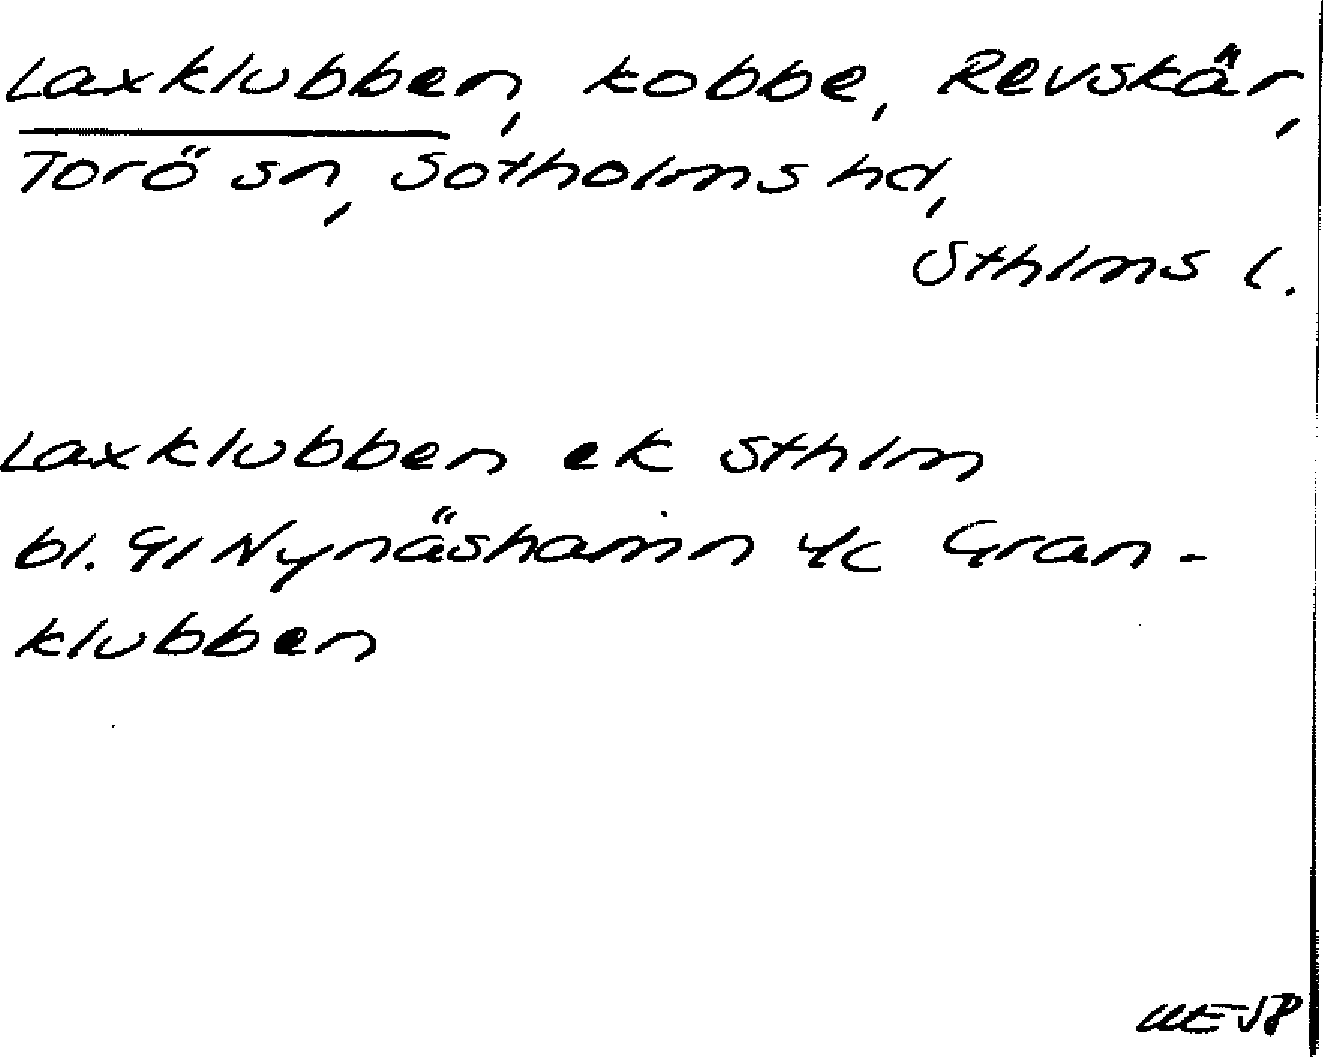 Laxklubben, kobbe, Revskär,
Torö sn, Sotholms hd,
Sthlms l.
Laxklubben ek Sthlm
bl. 91 Nynäshamn 4c Gran-
klubben